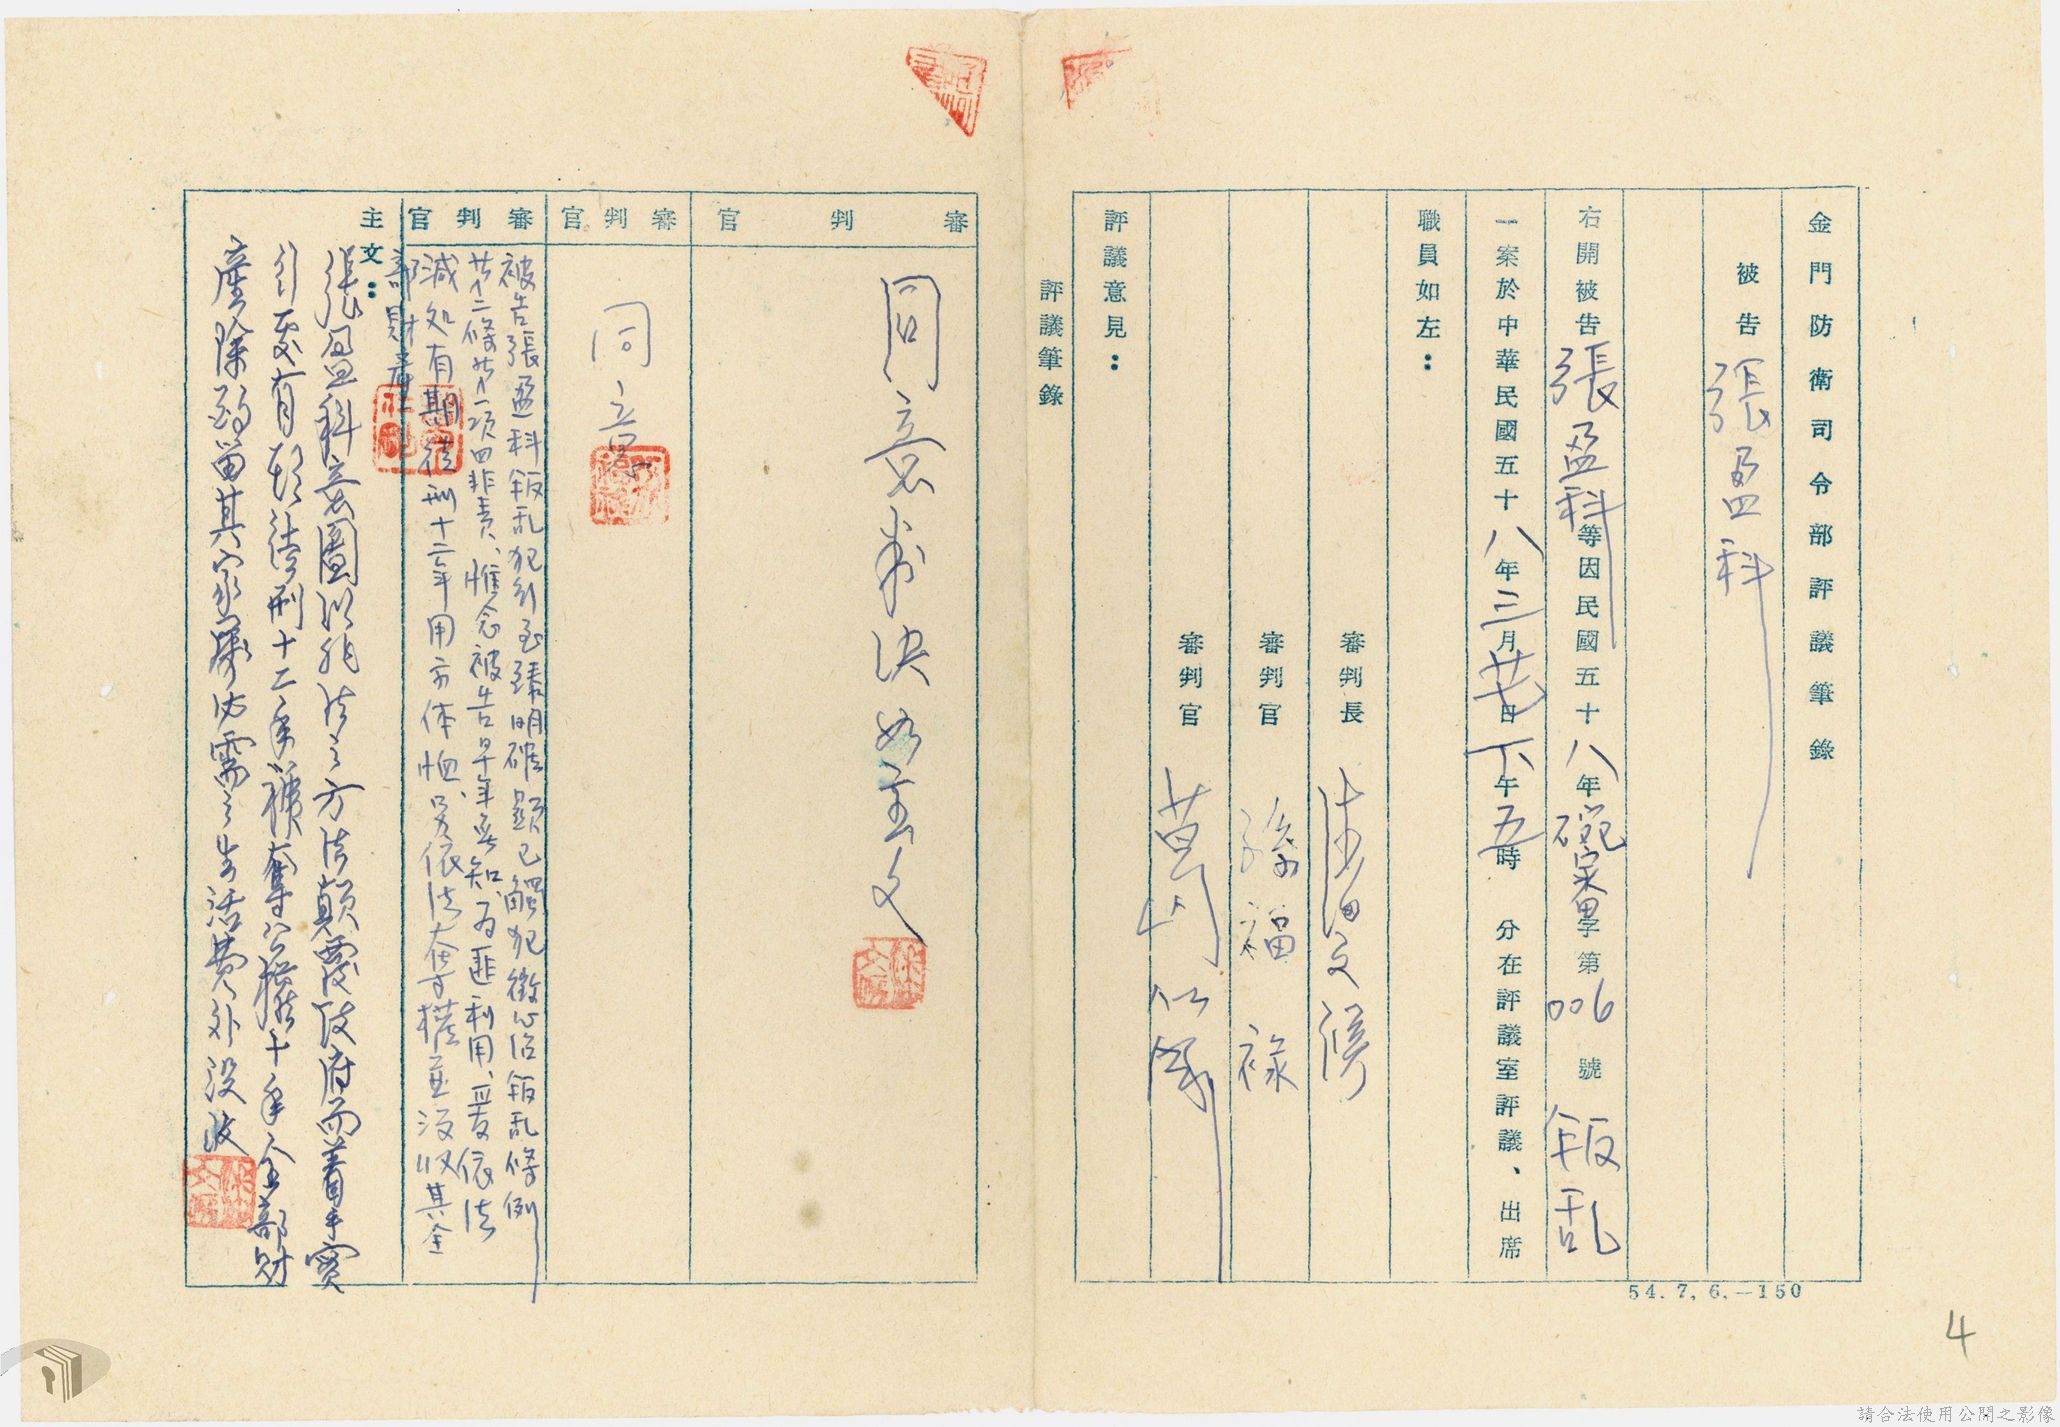 金門防衛司令部評議筆錄
被告 張盈科
右開被告張盈科等因民國五十八年碗案字第006號 叛乱
一案於中華民國五十八年三月廿七日下午五時 分在評議室評議、出席
職員如左:
審判長
審判官 孫福祿
審判官
評議意見:
評議筆錄
54.7.6.—150
審判官
同意判決如主文
審判官
同意
審判官
被告張盈科叛乱犯行至臻明確顯已觸犯懲治叛乱條例
第二條第一項四非責、惟念被告早年無知、為匪利用、爰依法
減処有期徒刑十二年用示体恤、另依法奪権並沒收其全
部財產
主文:
張盈科意圖以非法之方法顛覆政府而著手實
行處有期徒刑十二年褫奪公權十年全部財
產除酌留其家屬必需之生活費外沒收
4
請合法使用公開之影像